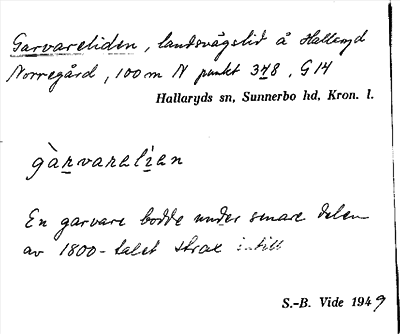 Garvareliden, landsvägslid å Hallaryd
Norregård, 100 m N punkt 378, G14
Hallaryds sn, Sunnerbo hd, Kron. l.
gàrvarelìen
En garvare bodde under senare delen
av 1800-talet strax intill
S.-B. Vide 1949